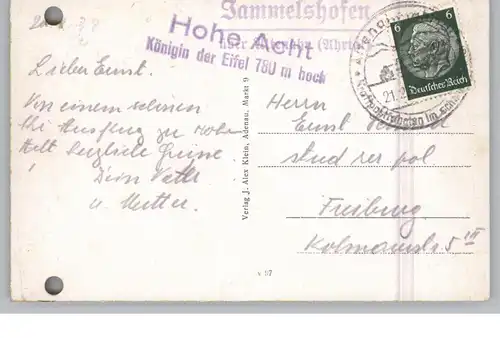 Jammelshofen
über Adenau (Ahrt
Hohe Acht
Königin der Eifel 760 m hoch
6 6
Deutsches Reich
21.
Lieber Ernst.
Von einem schönen
Ski Ausflug zu Hohe
Acht herzliche Grüsse.
Dein Vater
u. Mutter.
Verlag J. Alex Klein, Adenau, Markt 9
Herrn
Ernst
stud rer pol
Freiburg
5 III
v 87